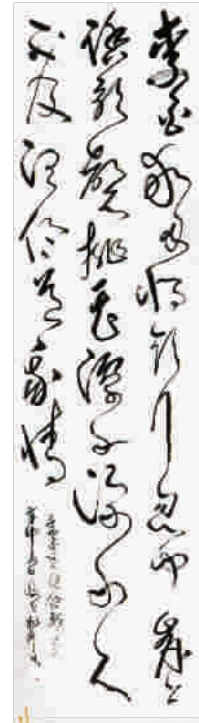 李白乘舟将欲行忽闻岸上
踏歌声桃花潭水深千尺
不及汪伦送我情